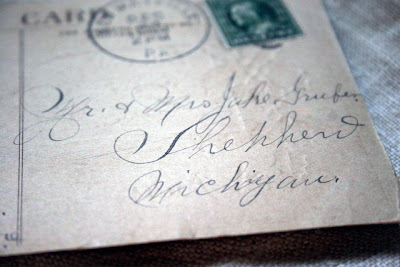 CARD
DEC
PA.
Mr. & Mrs Jake Gruber
Shepherd
Michigan.